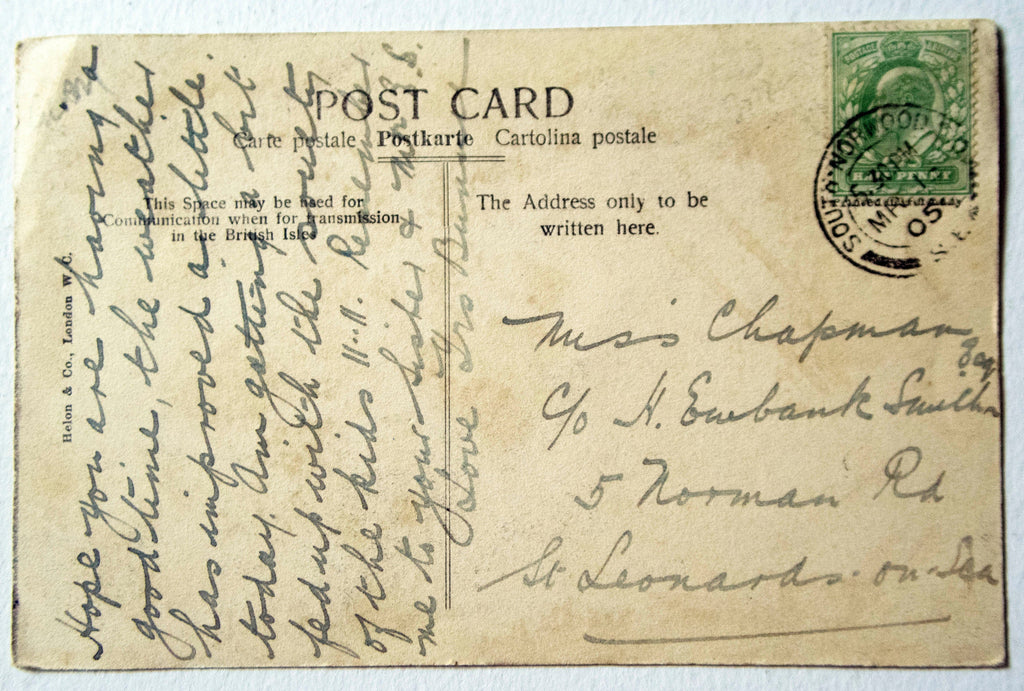 POST CARD
Carte postale Postkarte Cartolina postale
This Space may be used for
Communication when for transmission
in the British Isles
The Address only to be
written here.
Helon & Co., London W.C.
POSTAGE
HALFPENNY
SOUTH NORWOOD
5.30PM
05
S.E.
Hope you are having a
good time, the weather
has improved a little
today. Am getting a bit
fed up with the
of the kids 11-11. Remember
me to your sister & Mr
Love
Miss Chapman
C/o H. Ewbank Smith Esq
5 Norman Rd
St Leonards-on-Sea